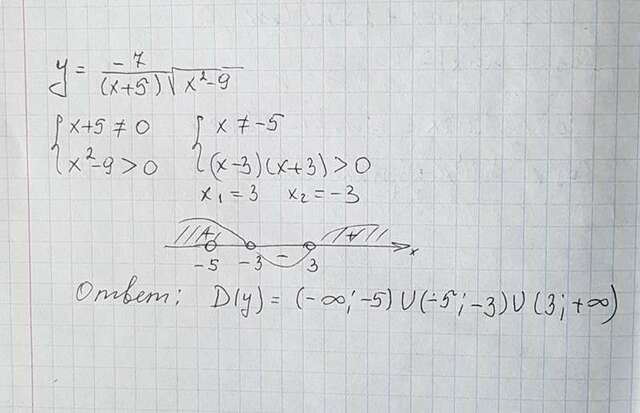 y = -7 / ((x+5)√(x²-9))
{ x+5 ≠ 0 { x ≠ -5
{ x²-9 > 0 { (x-3)(x+3) > 0
x₁ = 3 x₂ = -3
+ - + x
-5 -3 3
Ответ: D(y) = (-∞; -5) ∪ (-5; -3) ∪ (3; +∞)